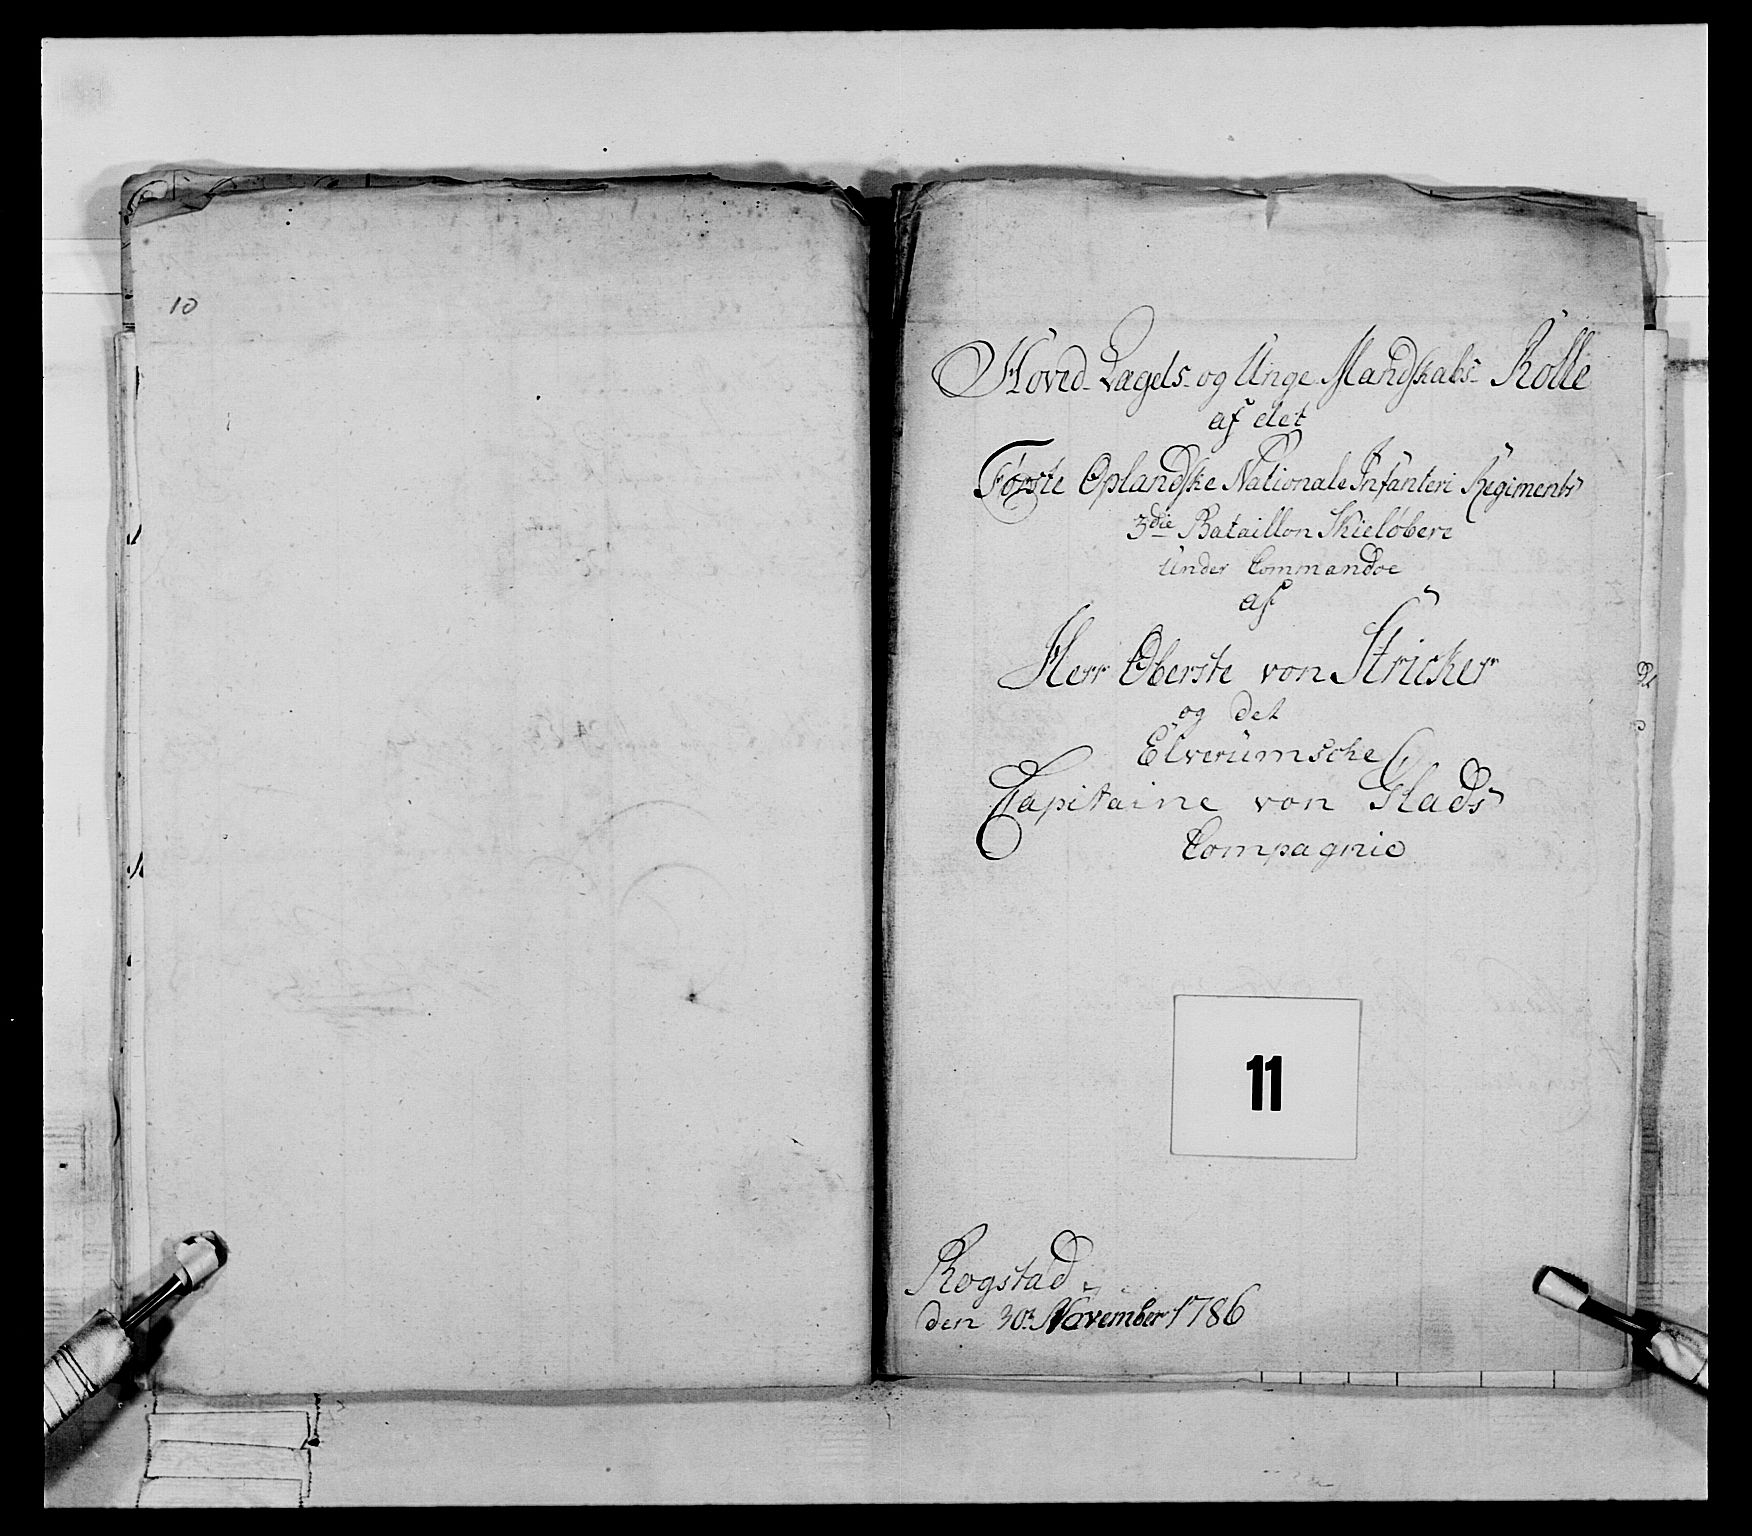 10
Hoved- Lægds- og Unge Mandskabs- Rolle
af det
Første Oplandske Nationale Infanteri Regiments
3die Bataillon Skieløbere
Under Commandoe
af
Herr Oberste von Stricker
og det
Elverumsche
Capitaine von Glads
Compagnie
11
Rogstad
den 30t November 1786